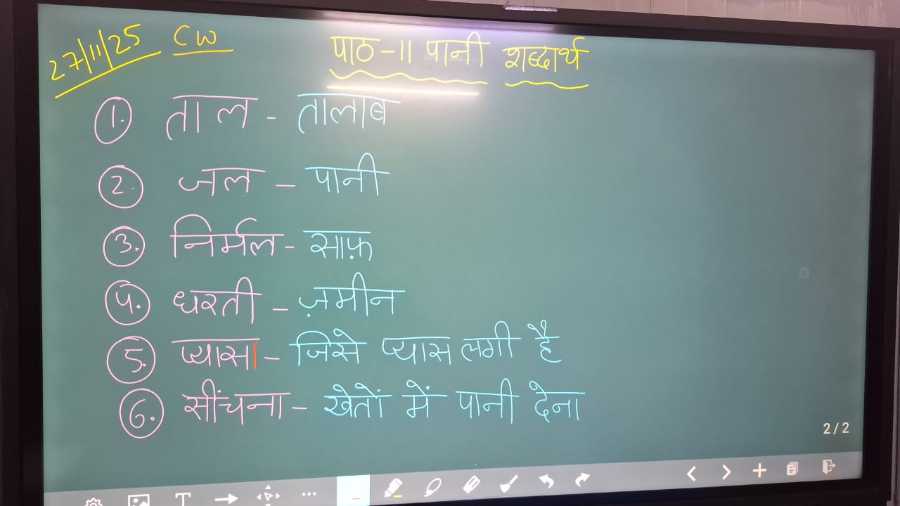 27/11/25 CW पाठ-11 पानी शब्दार्थ
1. ताल - तालाब
2. जल - पानी
3. निर्मल - साफ़
4. धरती - ज़मीन
5. प्यासा - जिसे प्यास लगी है
6. सींचना - खेतों में पानी देना
2/2